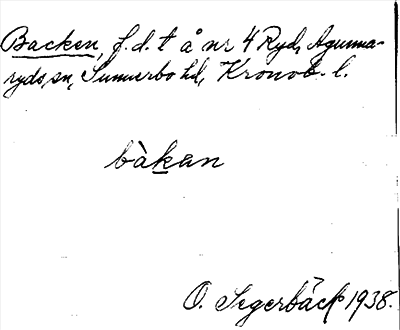 Backen, f.d. t å nr 4 Ryd, Agunna-
ryds sn, Sunnerbo hd, Kronob. l.
bàkan
O. Segerbäck 1938.